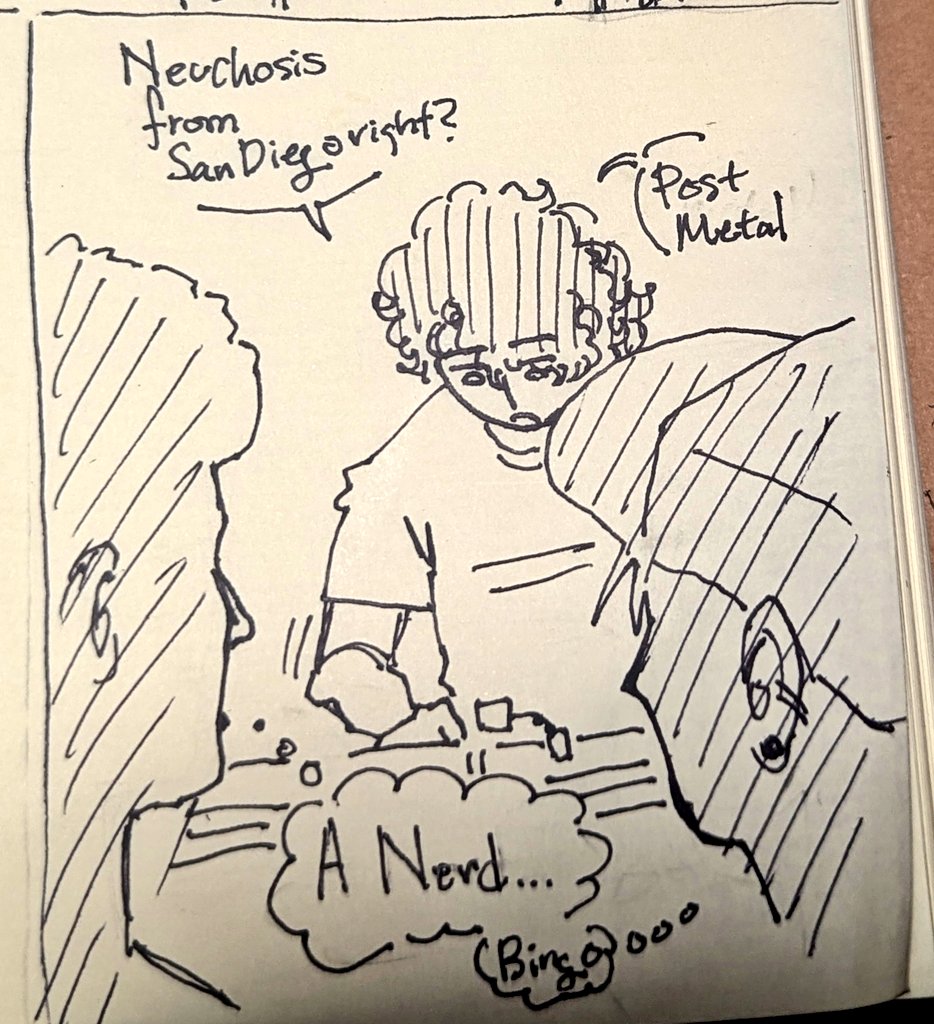 Neuchosis
from
San Diego right?
Post
Metal
A Nerd...
Bingo